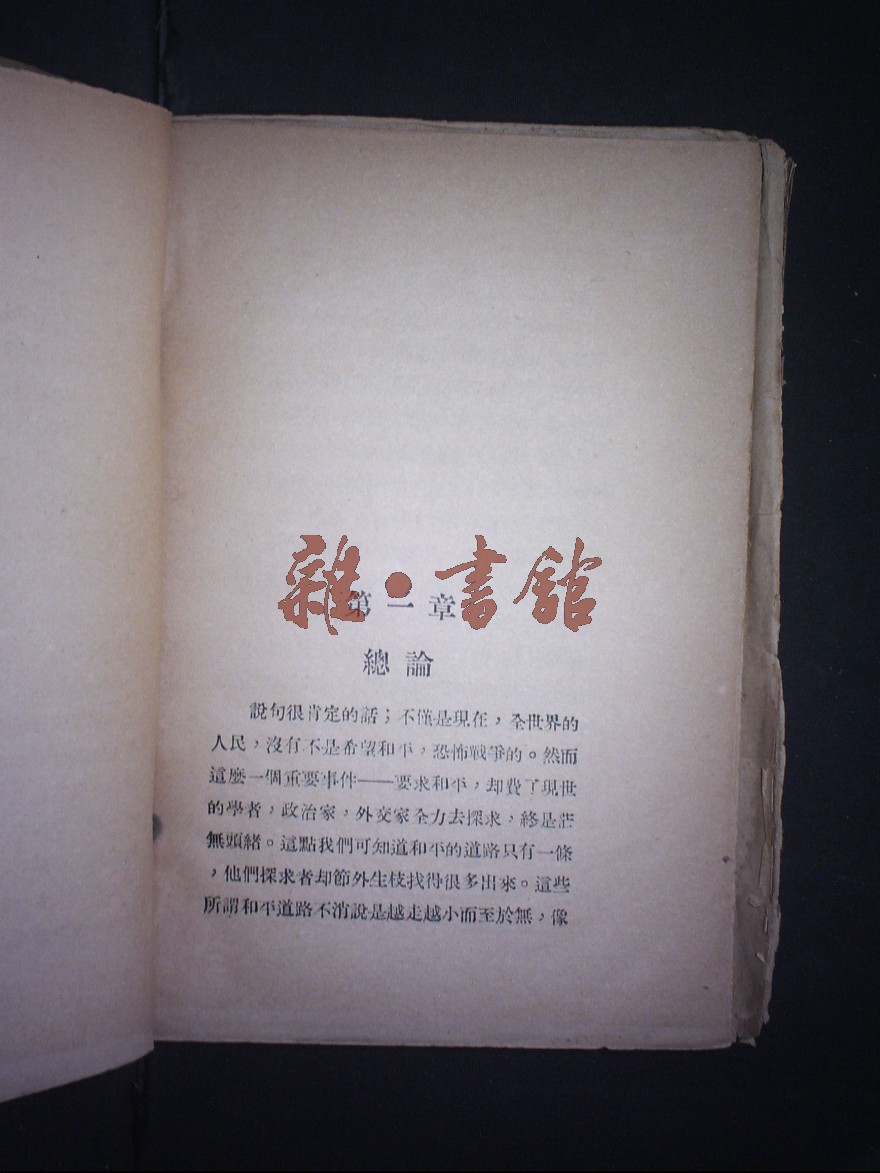 雜·書館
第一章
總論
說句很肯定的話；不僅是現在，全世界的
人民，沒有不是希望和平，恐怖戰爭的。然而
這麼一個重要事件——要求和平，却費了現世
的學者，政治家，外交家全力去探求，終是茫
無頭緒。這點我們可知道和平的道路只有一條
，他們探求者却節外生枝找得很多出來。這些
所謂和平道路不消說是越走越小而至於無，像